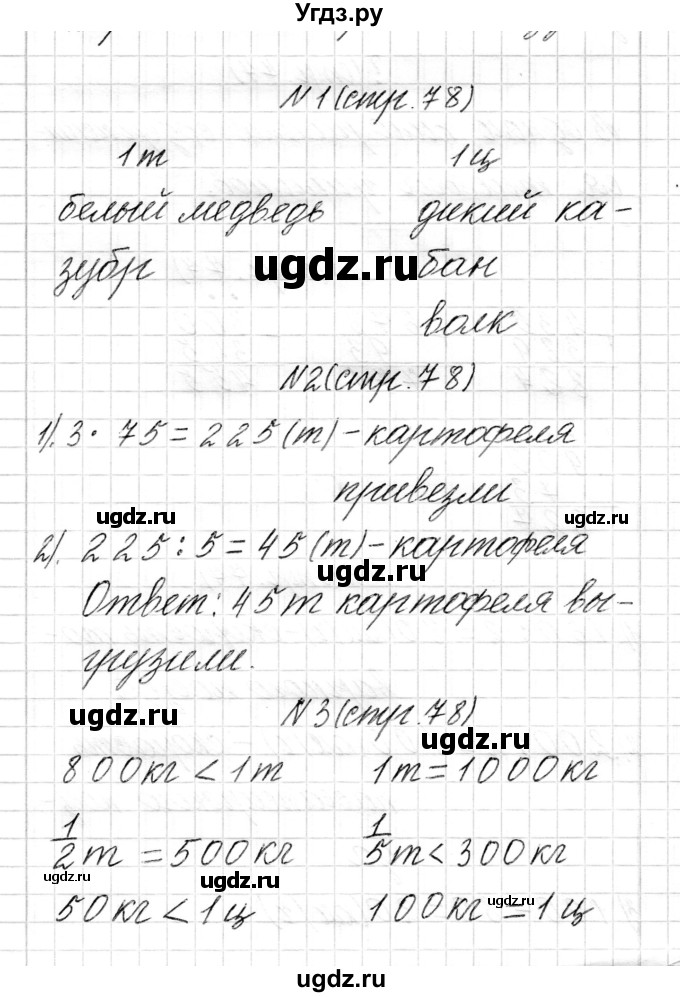 Угдз.ру
N 1 (стр. 78)
1т 1ц
белый медведь дикий ка-
зубр ugdz.ru бан
волк
N2 (стр. 78)
1). 3 · 75 = 225 (т) - картофеля
привезли
ugdz.ru
2). 225 : 5 = 45 (т) - картофеля
ugdz.ru
Ответ: 45 т картофеля вы-
грузили.
N 3 (стр. 78)
ugdz.ru
ugdz.ru
800 кг < 1 т 1 т = 1000 кг
1/2 т = 500 кг 1/5 т < 300 кг
ugdz.ru ugdz.ru
50 кг < 1 ц 100 кг = 1 ц
ugdz.ru
ugdz.ru